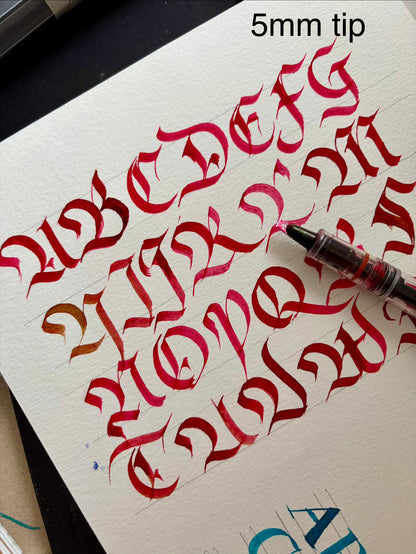 5mm tip
A B C D E F G
H I J K L M
N O P Q R S
T U V W
A